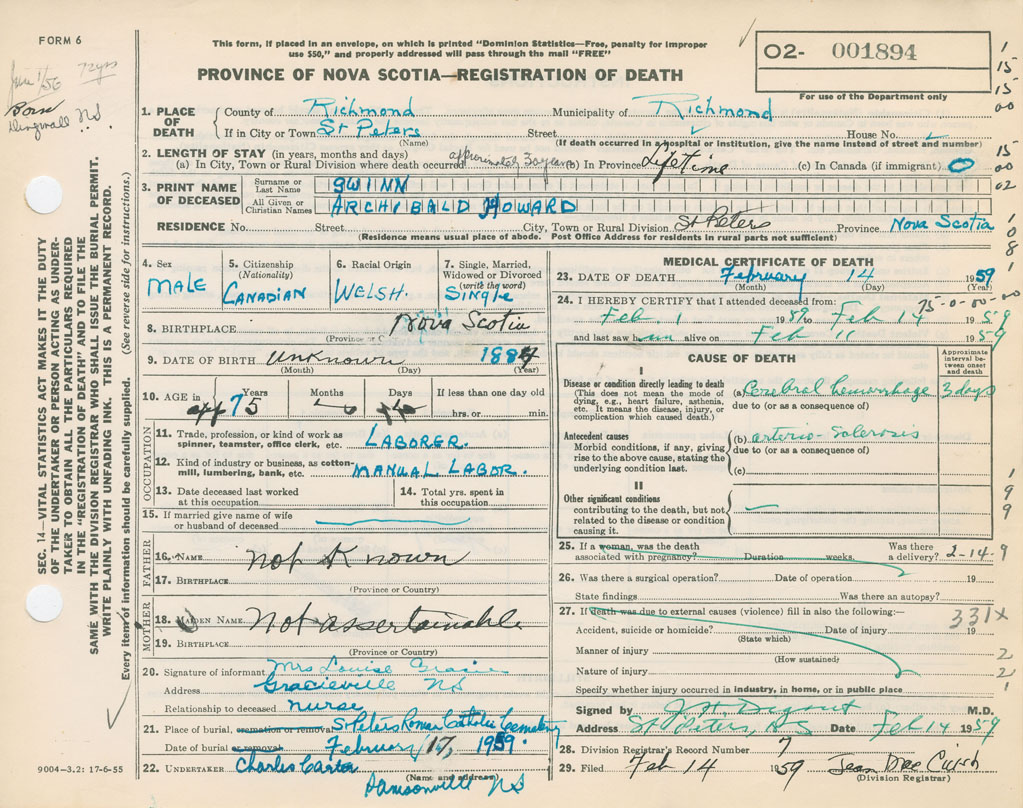 FORM 6
This form, if placed in an envelope, on which is printed "Dominion Statistics—Free, penalty for improper
use $50," and properly addressed will pass through the mail "FREE"
PROVINCE OF NOVA SCOTIA—REGISTRATION OF DEATH
02- 001894
For use of the Department only
Born
Dingwall NS
SEC. 14—VITAL STATISTICS ACT MAKES IT THE DUTY
OF THE UNDERTAKER OR PERSON ACTING AS UNDER-
TAKER TO OBTAIN ALL THE PARTICULARS REQUIRED
IN THE "REGISTRATION OF DEATH" AND TO FILE THE
SAME WITH THE DIVISION REGISTRAR WHO SHALL ISSUE THE BURIAL PERMIT.
WRITE PLAINLY WITH UNFADING INK. THIS IS A PERMANENT RECORD.
Every item of information should be carefully supplied. (See reverse side for instructions.)
1. PLACE OF DEATH
County of Richmond Municipality of Richmond
If in City or Town St Peters Street House No.
(Name) (If death occurred in a hospital or institution, give the name instead of street and number)
2. LENGTH OF STAY (in years, months and days)
(a) In City, Town or Rural Division where death occurred approximately 30 years (b) In Province Lifetime (c) In Canada (if immigrant) 0
3. PRINT NAME OF DECEASED
Surname or Last Name GWINN
All Given or Christian Names ARCHIBALD HOWARD
RESIDENCE No. Street City, Town or Rural Division St Peters Province Nova Scotia
(Residence means usual place of abode. Post Office Address for residents in rural parts not sufficient)
4. Sex MALE
5. Citizenship (Nationality) CANADIAN
6. Racial Origin WELSH.
7. Single, Married, Widowed or Divorced (write the word) Single
8. BIRTHPLACE Nova Scotia
9. DATE OF BIRTH Unknown 1884
(Month) (Day) (Year)
10. AGE in app 75 Years Months Days If less than one day old
hrs. or min.
OCCUPATION
11. Trade, profession, or kind of work as
spinner, teamster, office clerk, etc. LABORER.
12. Kind of industry or business, as cotton-
mill, lumbering, bank, etc. MANUAL LABOR.
13. Date deceased last worked
at this occupation
14. Total yrs. spent in
this occupation
15. If married give name of wife
or husband of deceased
FATHER
16. NAME not Known
17. BIRTHPLACE
(Province or Country)
MOTHER
18. MAIDEN NAME Not ascertainable
19. BIRTHPLACE
(Province or Country)
20. Signature of informant Mrs Louise Gracie
Address Gracieville NS
Relationship to deceased nurse
21. Place of burial, cremation or removal St Peters Roman Catholic Cemetery
Date of burial or removal February 17, 1959.
22. UNDERTAKER Charles Carter
(Name and address)
Samsonville NS
9004—3.2: 17-6-55
MEDICAL CERTIFICATE OF DEATH
23. DATE OF DEATH February 14 1959
(Month) (Day) (Year)
75-0-00-00
24. I HEREBY CERTIFY that I attended deceased from:
Feb. 1 1959 to Feb 14 1959
and last saw him alive on Feb 11 1959
CAUSE OF DEATH
Approximate interval between onset and death
I
Disease or condition directly leading to death
(This does not mean the mode of dying, e.g., heart failure, asthenia, etc. It means the disease, injury, or complication which caused death.)
(a) Cerebral hemorrhage 3 days
due to (or as a consequence of)
Antecedent causes
Morbid conditions, if any, giving rise to the above cause, stating the underlying condition last.
(b) arterio-sclerosis
due to (or as a consequence of)
(c)
II
Other significant conditions
contributing to the death, but not related to the disease or condition causing it.
25. If a woman, was the death
associated with pregnancy? Duration weeks. Was there a delivery? 2-14-9
26. Was there a surgical operation? Date of operation 19
State findings Was there an autopsy?
27. If death was due to external causes (violence) fill in also the following:— 331x
Accident, suicide or homicide? Date of injury 19
(State which)
Manner of injury
(How sustained)
Nature of injury
Specify whether injury occurred in industry, in home, or in public place
Signed by M.D.
Address St Peters, N.S Date Feb 14 1959
28. Division Registrar's Record Number 7
29. Filed Feb 14 1959
(Division Registrar)
1
15
15
00
15
00
02
1
0
8
1
9
9
2
2
1